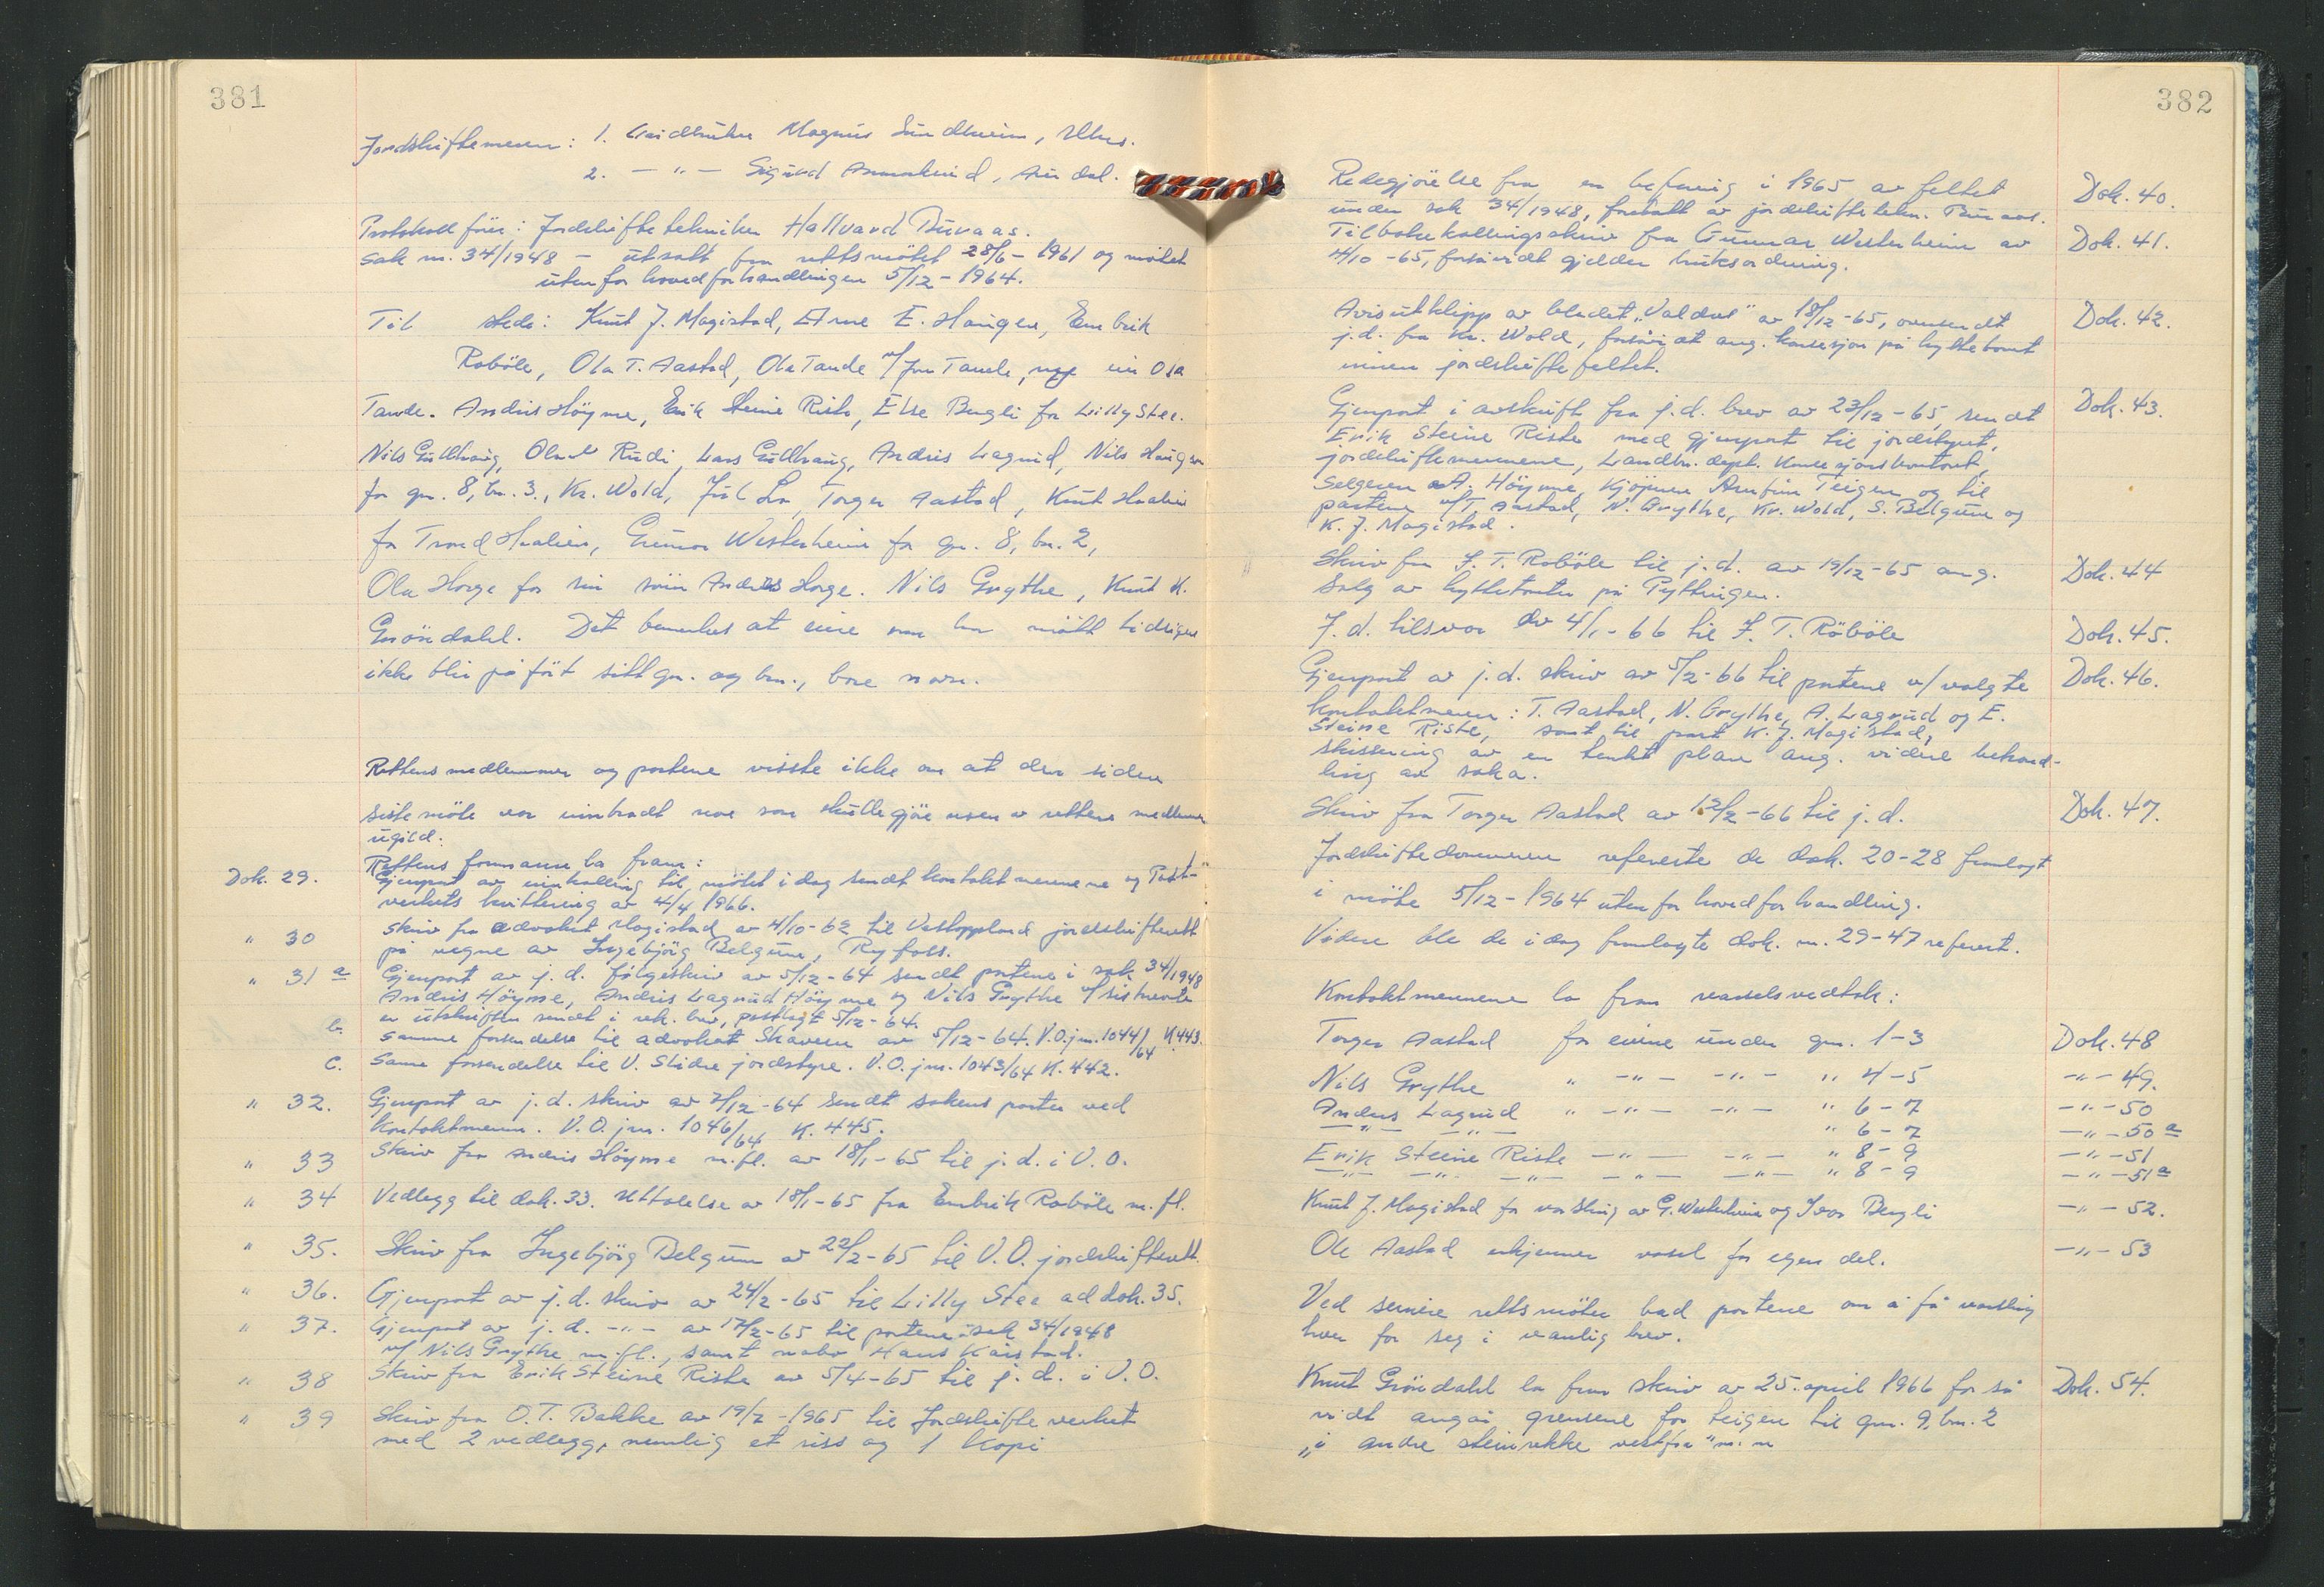 381
Jordskiftemenn: 1. Gardbruker Magnus Sundheim, Ulnes.
2. — " — Sigurd , Aurdal.
Protokollfører: Jordskiftetekniker Hallvard Buraas.
Sak nr. 34/1948 – utsatt fra rettsmøtet 28/6 – 1961 og møtet
utenfor hovedforhandlingen 5/12 – 1964.
Til stede: Knut J. Magistad, Arne E. Haugen, Embrik
Robøle, Ola T. Aastad, Ola Tande v/ Jon Tande, Ola
Tande. Andris Høyme, Erik Steine Riste, Else Bergli for Lilly Stee.
Nils Gullhaug, Olav Rudi, Lars Gullhaug, Andris Lagrud, Nils Haugen
for gn. 8, bn. 3., Kr. Wold, Jul Lo, Torger Aastad, Knut Haalien
for Trond Haalien, Gunnar Westerheim for gn. 8, bn. 2,
Ola Horge for sin sønn Andris Horge. Nils Grythe, Knut K.
Grøndahl. Det bemerkes at eiere som har møtt tidligere
ikke blir påført sitt gn. og bn., bare navn.
Rettens medlemmer og partene visste ikke om at der siden
siste møte var inntrådt noe som skulle gjøre noen av rettens medlemmer
ugild.
Rettens formann la fram:
Dok. 29. Gjenpart av innkalling til møtet i dag sendt kontaktmennene og Post-
verkets kvittering av 4/4 1966.
" 30 Skriv fra advokat Magistad av 4/10-62 til Vestoppland jordskifterett
på vegne av Ingebjørg Belgum, Ryfoss.
" 31 a Gjenpart av j.d. følgeskriv av 5/12-64 sendt partene i sak 34/1948
Andris Høyme, Andris Lagrud Høyme og Nils Grythe v/ sistnevnte
er utskriften sendt i rek. brev, postlagt 5/12-64.
b. Samme forsendelse til advokat Skavern av 5/12-64. V.O. jnr. 1044/64 K. 443.
c. Samme forsendelse til V. Slidre jordstyre. V.O. jnr. 1043/64 K. 442.
" 32. Gjenpart av j.d. skriv av 7/12-64 sendt sakens parter ved
kontaktmenn. V.O. jnr. 1046/64 K. 445.
" 33 Skriv fra Andris Høyme m.fl. av 18/1-65 til j.d. i V.O.
" 34 Vedlegg til dok. 33. Uttalelse av 18/1-65 fra Embrik Robøle m.fl.
" 35. Skriv fra Ingebjørg Belgum av 22/2-65 til V.O. jordskifterett.
" 36. Gjenpart av j.d. skriv av 24/2-65 til Lilly Stee ad dok. 35.
" 37. Gjenpart av j.d. -"- av 17/2-65 til partene i sak 34/1948
v/ Nils Grythe m.fl., samt nabo Hans Kaistad.
" 38 Skriv fra Erik Steine Riste av 5/4-65 til j.d. i V.O.
" 39 Skriv fra O.T. Bakke av 19/7-1965 til Jordskifteverket
med 2 vedlegg, nemlig et riss og 1 kopi
382
Redegjørelse fra en befaring i 1965 av feltet Dok. 40.
under sak 34/1948, foretatt av jordskiftetekn. Buraas.
Tilbakekallingsskriv fra Gunnar Westerheim av Dok. 41.
4/10-65, forsåvidt gjelder bruksordning.
Avisutklipp av bladet „Valdres" av 18/12-65, oversendt Dok. 42.
j.d. fra Kr. Wold, forsåvidt ang. konsesjon på hyttetomt
innen jordskiftefeltet.
Gjenpart i avskrift fra j.d. brev av 23/12-65, sendt Dok. 43.
Erik Steine Riste med gjenpart til jordstyret,
jordskiftemennene, Landbr. dept. konsesjonskontoret,
selgeren A. Høyme, kjøperen Arnfinn Teigen og til
partene v/ T. Aastad, N. Grythe, Kr. Wold, S. Belgum og
K. J. Magistad.
" Skriv fra J. T. Robøle til j.d. av 19/12-65 ang. Dok. 44
Salg av hyttetomter på Pyttingen.
J.d. tilsvar av 4/1-66 til J. T. Robøle Dok. 45.
Gjenpart av j.d. skriv av 5/2-66 til partene v/ valgte Dok. 46.
kontaktmenn: T. Aastad, N. Grythe, A. Lagrud og E.
Steine Riste, samt til part K. J. Magistad,
skissering av en tenkt plan ang. videre behand-
ling av saka.
Skriv fra Torger Aastad av 12/2-66 til j.d. Dok. 47.
Jordskiftedommeren refererte de dok. 20-28 framlagt
i møte 5/12-1964 utenfor hovedforhandling.
Videre ble de i dag framlagte dok. nr. 29-47 referert.
Kontaktmennene la fram varselsvedtak:
Torger Aastad for eiene under gnr. 1-3 Dok. 48
Nils Grythe " -"- -"- " 4-5 -"- 49.
Andris Lagrud " -"- -"- " 6-7 -"- 50
-"- -"- " 6-7 -"- 50 a
Erik Steine Riste -"- -"- " 8-9 -"- 51
-"- -"- -"- -"- -"- " 8-9 -"- 51a
Knut J. Magistad for varsling av G. Westerheim og Ivar Bergli -"- 52.
Ole Aastad erkjenner varsel for egen del. -"- 53
Ved senere rettsmøter bad partene om å få varsling
hver for seg i vanlig brev.
Knut Grøndahl la fram skriv av 25. april 1966 for så Dok. 54.
vidt angår grensene for teigen til gnr. 9, bn. 2
„i andre steinrekke vestfra" m.m